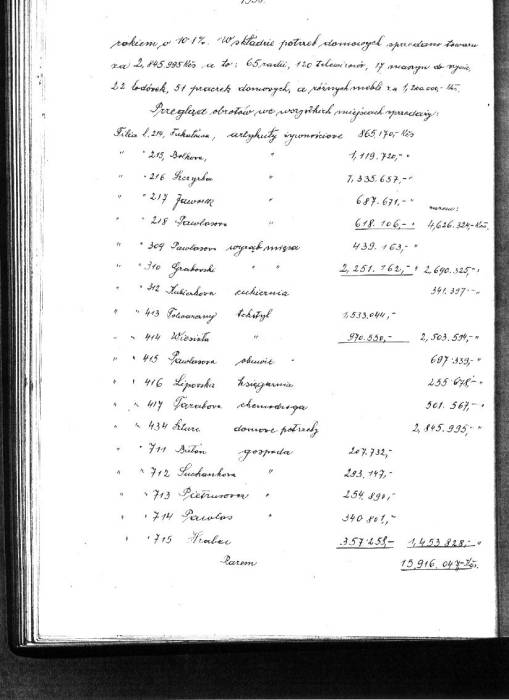 rokiem o 10 1%. W składzie potrzeb domowych sprzedano towaru
za 2,845.995 Kčs a to: 65 radii, 120 telewizorów, 17 maszyn do szycia,
22 lodówek, 51 praczek domowych, a różnych mebli za 1,200.000.- Kčs.
Przegląd obrotów we wszystkich miejscach sprzedaży:
Filia l. 214, artykuły żywnościowe 865.170,- Kčs
" " 215, " 1,119.720,- "
" " 216 " 1,335.657,- "
" " 217 Jawor " 687.671,- " razem:
" " 218 Pawlasova " 618.106,- " 4,626.324,- Kčs.
" " 309 Pawlasova wyrąb mięsa 439.163,- "
" " 310 Grabowski " " 2,251.162,- " 2,690.325,- "
" " 312 Kubienkova cukiernia 341.397,- "
" " 413 tekstyl 1,533.044,-
" " 414 970.550,- 2,503.594,- "
" " 415 Pawlasova obuwie " 687.339,- "
" " 416 Lipowska księgarnia 255.678,- "
" " 417 chemodroga 501.567,- "
" " 434 Szturc domowe potrzeby 2,845.995,- "
" " 711 gospoda 207.732,-
" " 712 Suchankova " 293.147,-
" " 713 Pietrusova " 254.890,-
" " 714 Pawlas " 340.801,-
" " 715 357.258,- 1,453.828,- "
Razem 15,916.047,- Kčs.